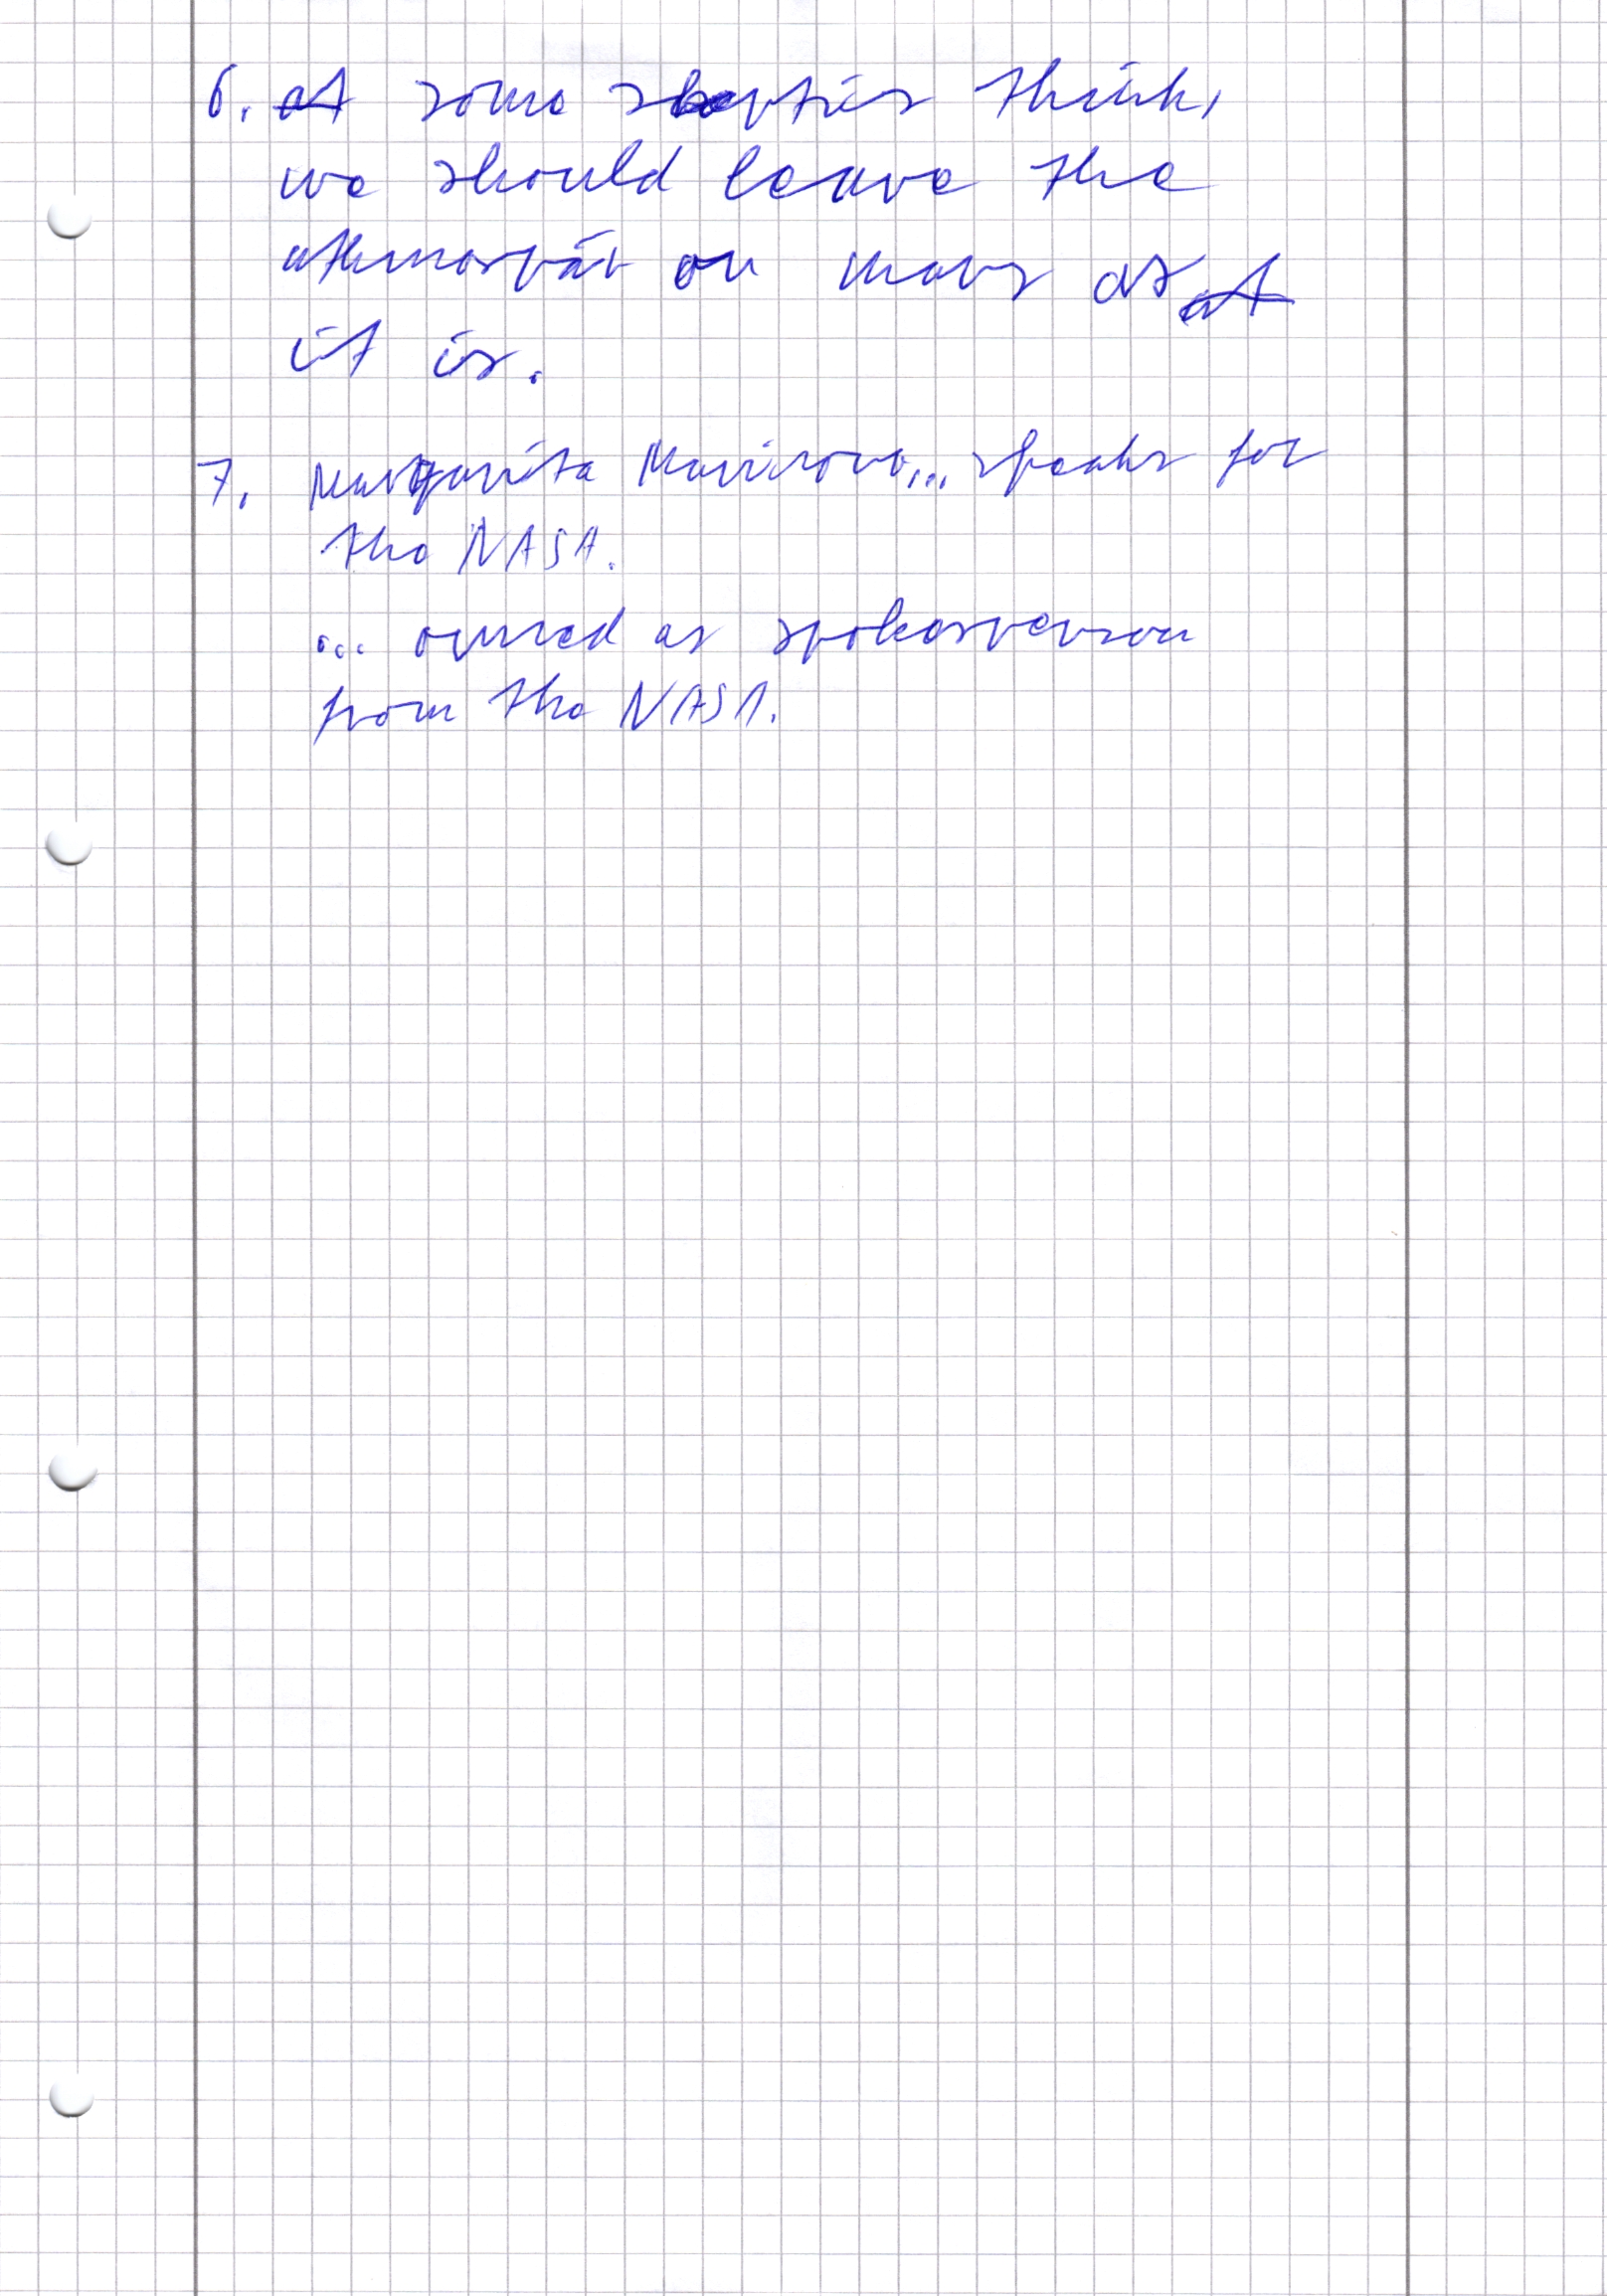 6. at some skeptics think,
we should leave the
athmospär on mars as at
it is.
7. Margarita Marinova... speaks for
the NASA.
... as spokesperson
from the NASA.